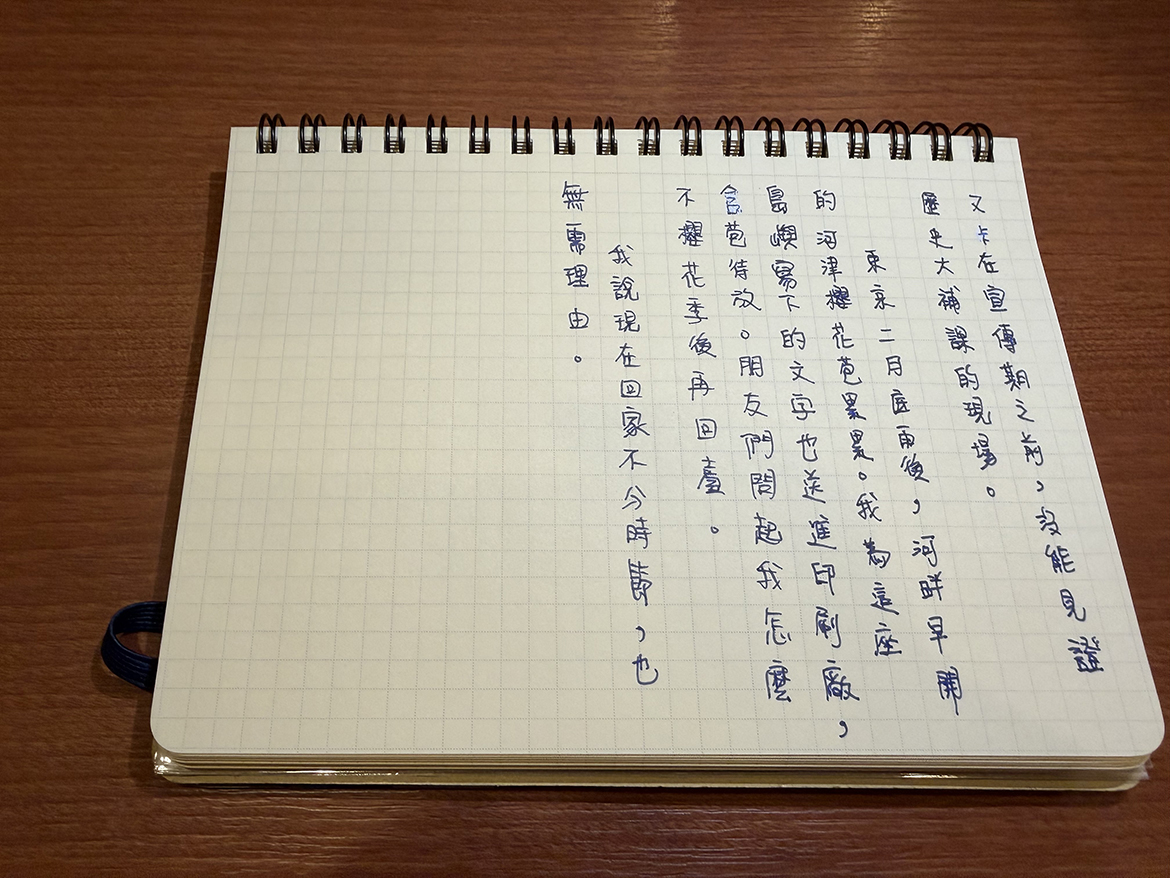 又卡在宣傳期之前，沒能見證
歷史大補課的現場。
東京二月底雨後，河畔早開
的河津櫻花苞累累。我為這座
島嶼寫下的文字也送進印刷廠，
含苞待放。朋友們問起我怎麼
不櫻花季後再回臺。
我說現在回家不分時節，也
無需理由。